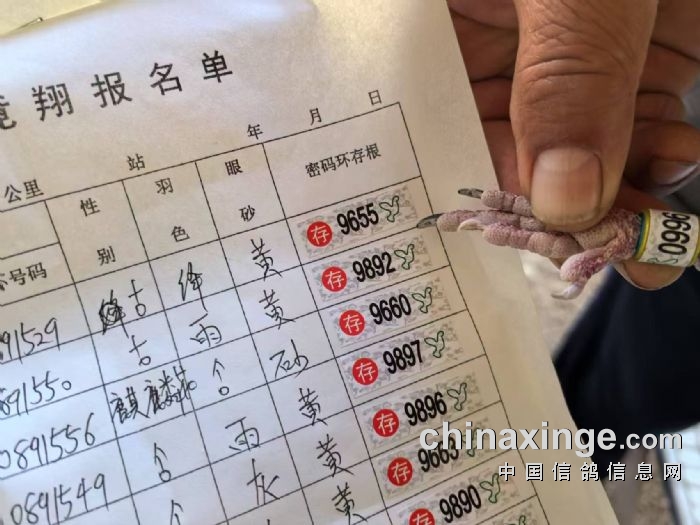 竞翔报名单
年 月 日
公里 站
号码 性别 羽色 眼砂 密码环存根
891529 黄 存 9655
891550 雨 黄 存 9892
0891556 砂 存 9660
0891549 雨 黄 存 9897
灰 黄 存 9896
黄 存 9665
存 9890
9660
chinaxinge.com
中国信鸽信息网